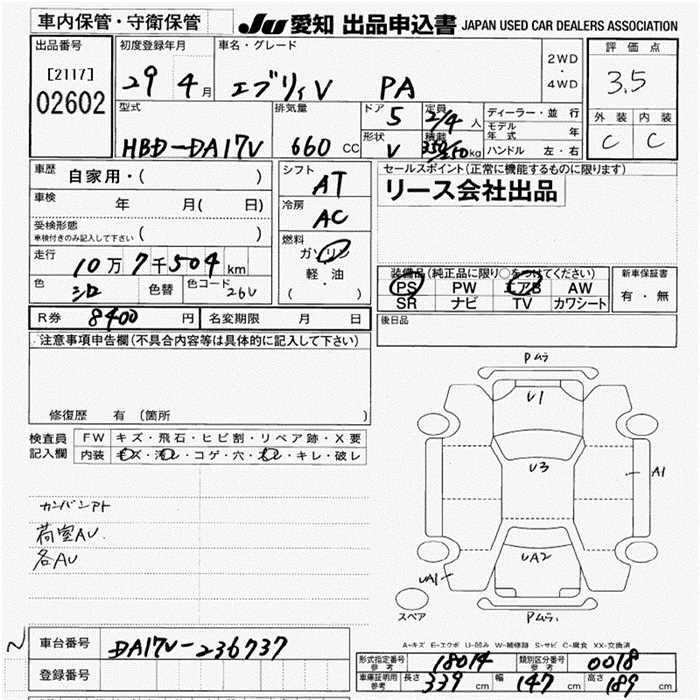 車内保管・守衛保管 JU 愛知 出品申込書 JAPAN USED CAR DEALERS ASSOCIATION
出品番号
[2117]
02602
初度登録年月
29 4月
車名・グレード
エブリィV PA
2WD
・
4WD
評価点
3.5
外装 内装
C C
型式
HBD-DA17V
排気量
660 CC
ドア 5
形状 V
定員 2/4 人
積載 350/250 kg
ディーラー・並行
モデル年式 年
ハンドル 左・右
車歴 自家用・( )
車検 年 月( 日)
受検形態
車検付きのみ記入して下さい ( )
走行
10万7千504km
色 シロ 色替 色コード 26U
シフト AT
冷房 AC
燃料
ガソリン
軽・油
( )
セールスポイント(正常に機能するものに限ります)
リース会社出品
装備品(純正品に限り○をつけてください)
PS PW エアB AW
SR ナビ TV カワシート
新車保証書
有・無
後日品
R券 8400円 名変期限 月 日
注意事項申告欄(不具合内容等は具体的に記入して下さい)
修復歴 有 (箇所 )
検査員記入欄
FW キズ・飛石・ヒビ割・リペア跡・X要
内装 キズ・汚レ・コゲ・穴・スレ・キレ・破レ
カンバンアト
荷室AU.
各AU
Pムラ
U1
U3
A1
UA2
UA1
スペア
Pムラ.
A-キズ E-エクボ U-凹み W-補修跡 S-サビ C-腐食 XX-交換済
車台番号 DA17V-236737
登録番号
形式指定番号 参考 18014 類別区分番号 参考 0018
車庫証明用 参考 長さ 339cm 幅 147cm 高さ 189cm